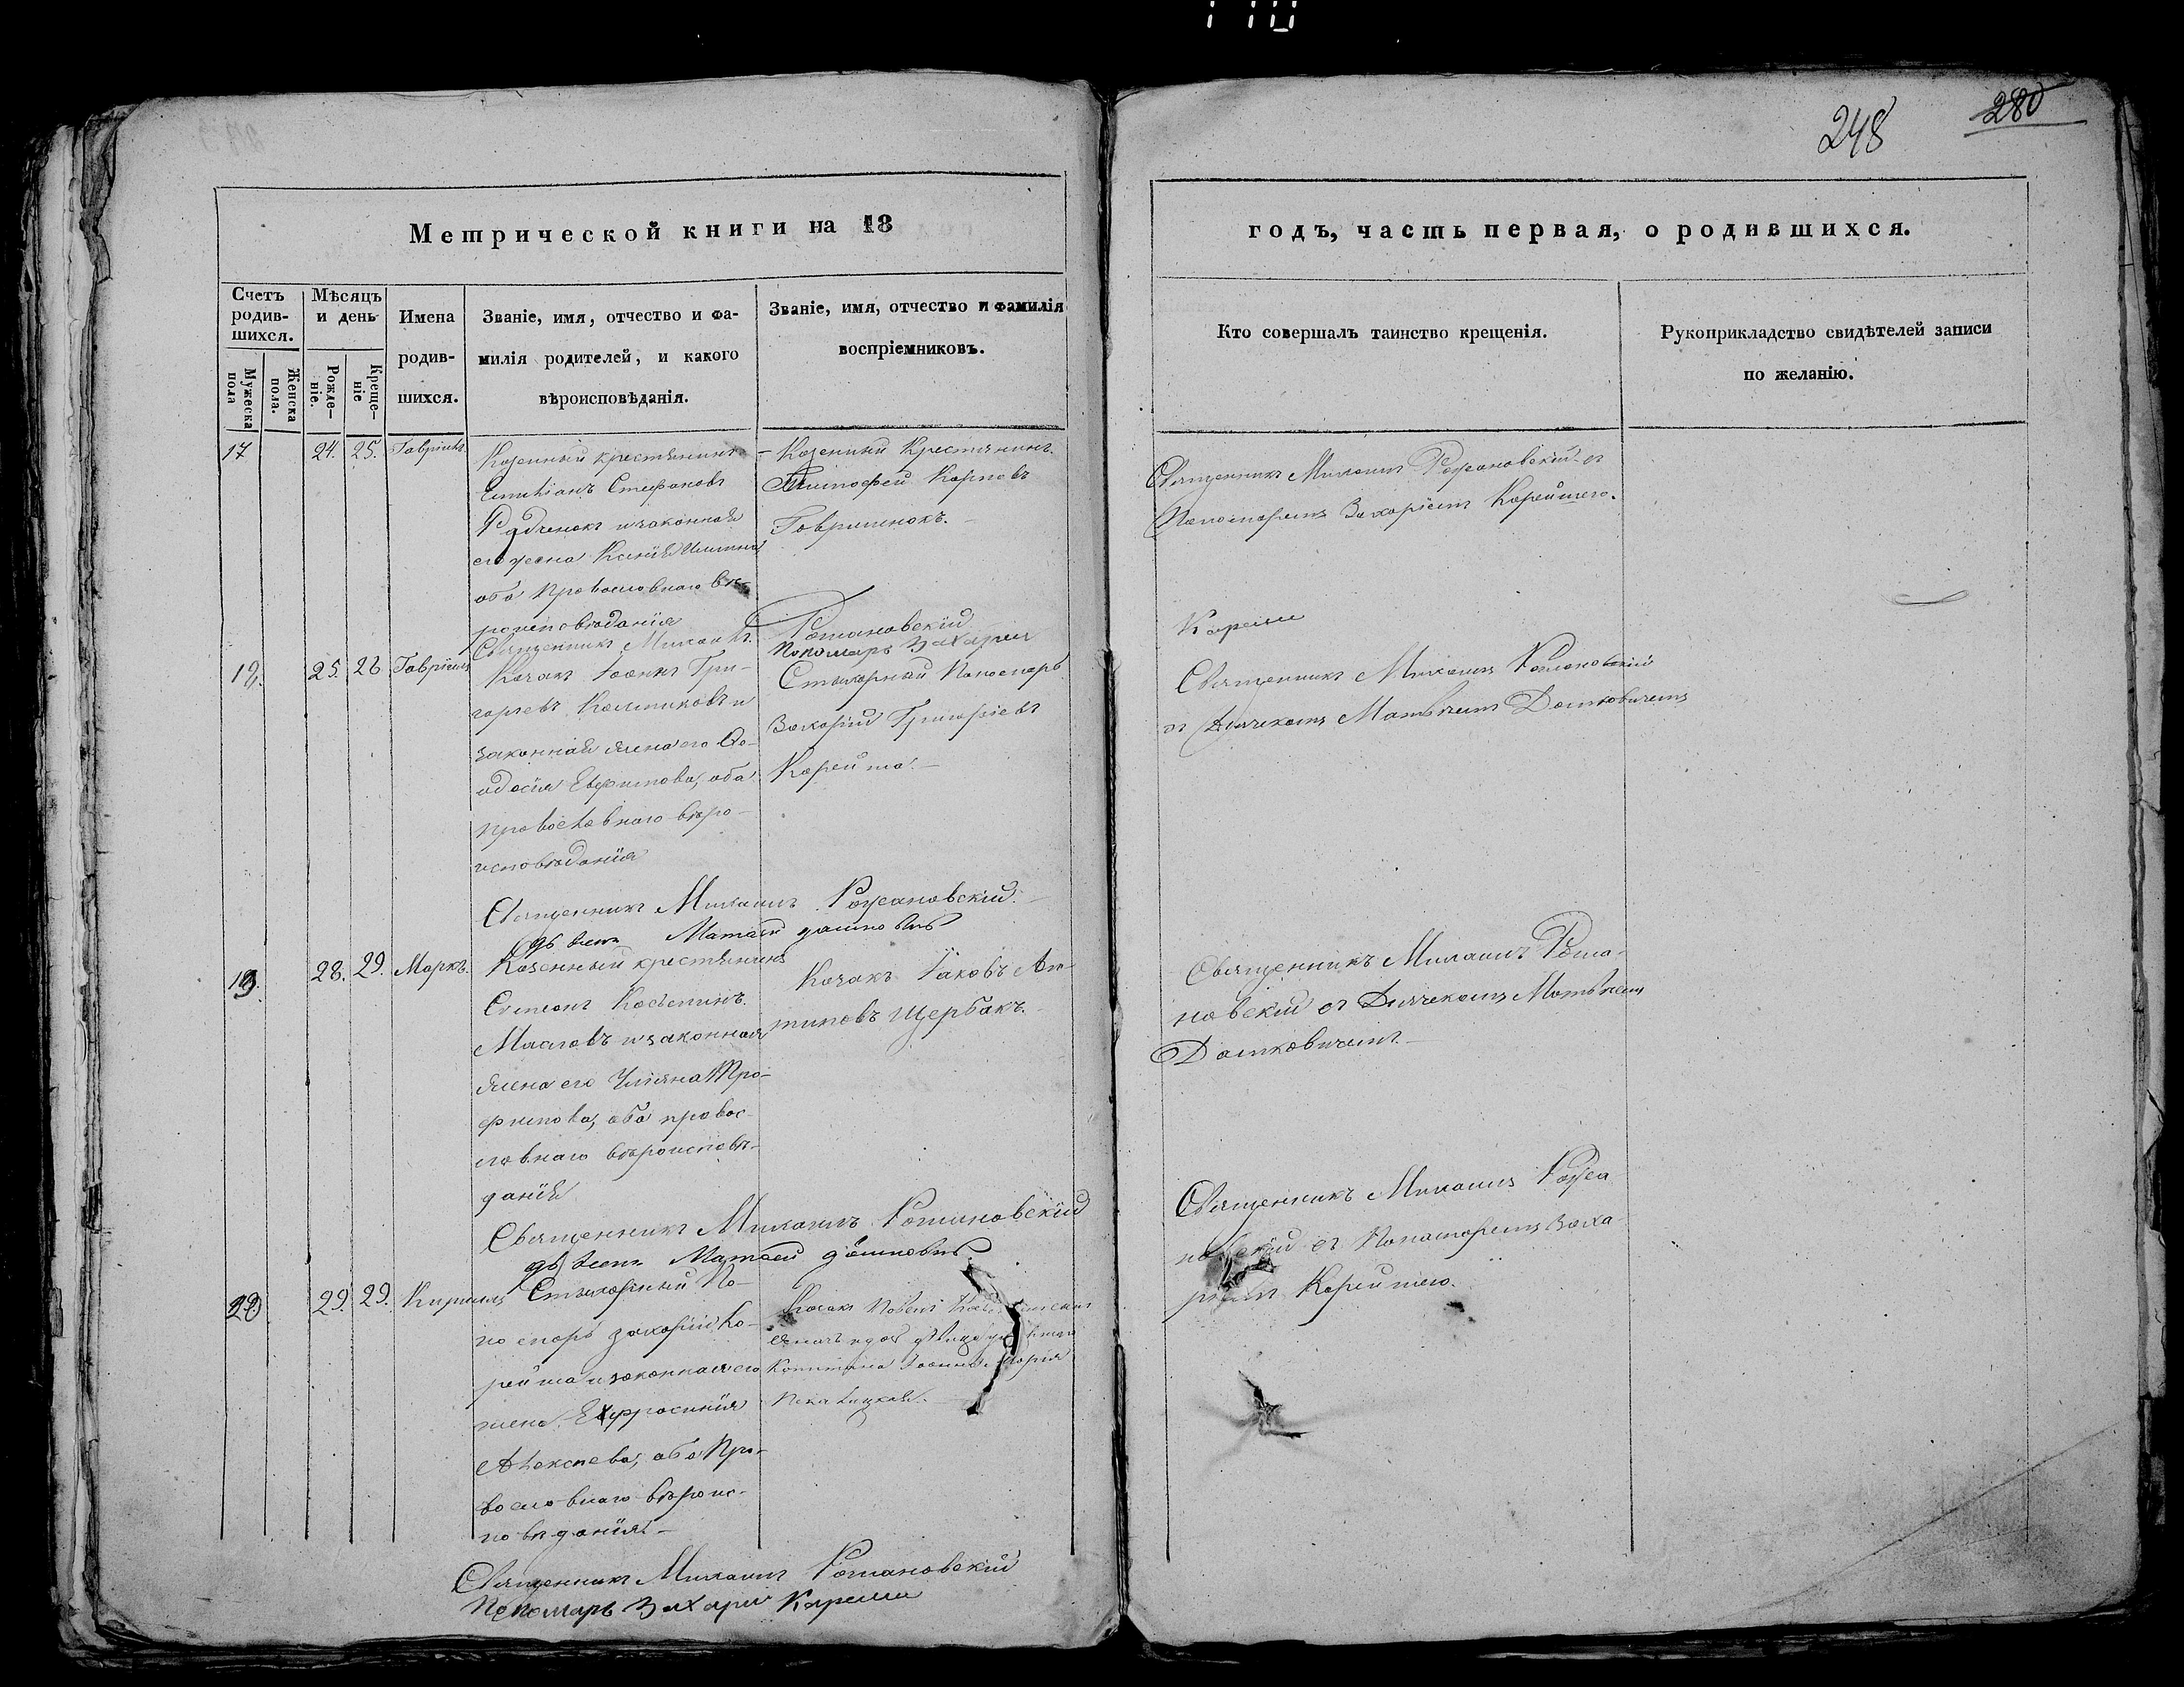 248
280
Метрической книги на 18
годъ, часть первая, о родившихся.
Счетъ родив-шихся.
Мужеска пола
Женска пола.
Мѣсяцъ и день
Рожде-ніе.
Креще-ніе
Имена
родив-
шихся.
Званіе, имя, отчество и фа-
милія родителей, и какого
вѣроисповѣданія.
Званіе, имя, отчество и фамилія
воспріемниковъ.
Кто совершалъ таинство крещенія.
Рукоприкладство свидѣтелей записи
по желанію.
17
24. 25. Гавріилъ.
Казенный крестьянинъ
Стефановъ
и законная
его жена
оба православнаго вѣ-
роисповѣданія
Казенный Крестьянинъ
Тимофей Карповъ
Гавриленокъ.
Священникъ Михаилъ Романовскій съ
Пономаремъ Захаріемъ Корейшею.
Священникъ Михаилъ Романовскій
Пономарь Захарій
Кореиши
18.
25. 26 Гавріилъ
Козакъ Іоаннъ Гри-
горьевъ и
законная жена его Ѳе-
одосія Евфимова, оба
православнаго вѣро-
исповѣданія
Стихарный Пономарь
Захарій Григоріевъ
Корейша.
Священникъ Михаилъ Романовскій
съ Дьячкомъ Матвѣемъ Дашковичемъ
Священникъ Михаилъ Романовскій.
Матвей
19.
28. 29. Маркъ.
Казенный крестьянинъ
Симеонъ Косьминъ
Масловъ и законная
жена его Улияна Тро-
фимова, оба правос-
лавнаго вѣроисповѣ-
данія
Козакъ Іаковъ Ан-
типовъ Щербакъ.
Священникъ Михаилъ Рома-
новскій съ Дьячкомъ Матвѣемъ
Дашковичемъ.
Священникъ Михаилъ Романовскій
Матвей
20
29. 29. Кириллъ
Стихарный По-
номарь Захарій Ко-
рейша и законная его
жена Евфросинія
Алексѣева, оба Пра-
вославнаго вѣроис-
повѣданія.
Козакъ Павелъ
Капитана Іоанна Марія
Священникъ Михаилъ Рома
новскій съ Пономаремъ Заха
ріемъ Корейшею.
Священникъ Михаилъ Романовскій
Пономарь Захарій Кореиши